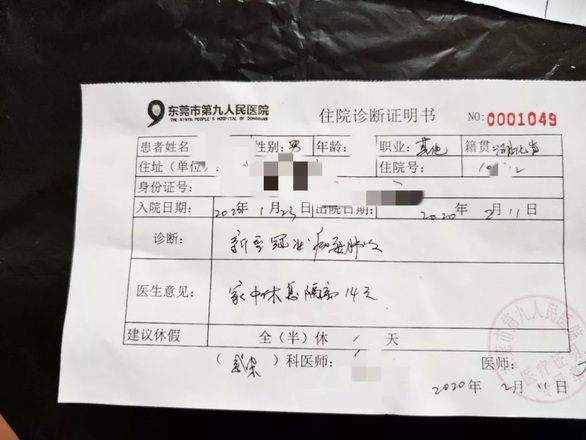 东莞市第九人民医院 住院诊断证明书 NO:0001049
THE NINTH PEOPLE'S HOSPITAL OF DONGGUAN
患者姓名 性别:男 年龄: 职业:其他 籍贯:湖北省
住址(单位): 住院号:
身份证号:
入院日期: 2020年1月23 出院日期: 2020年2月11日
诊断: 新型冠状病毒肺炎
医生意见: 家中休息隔离14天
建议休假 全(半)休 / 天
( )科医师: 医师:
2020年2月11日